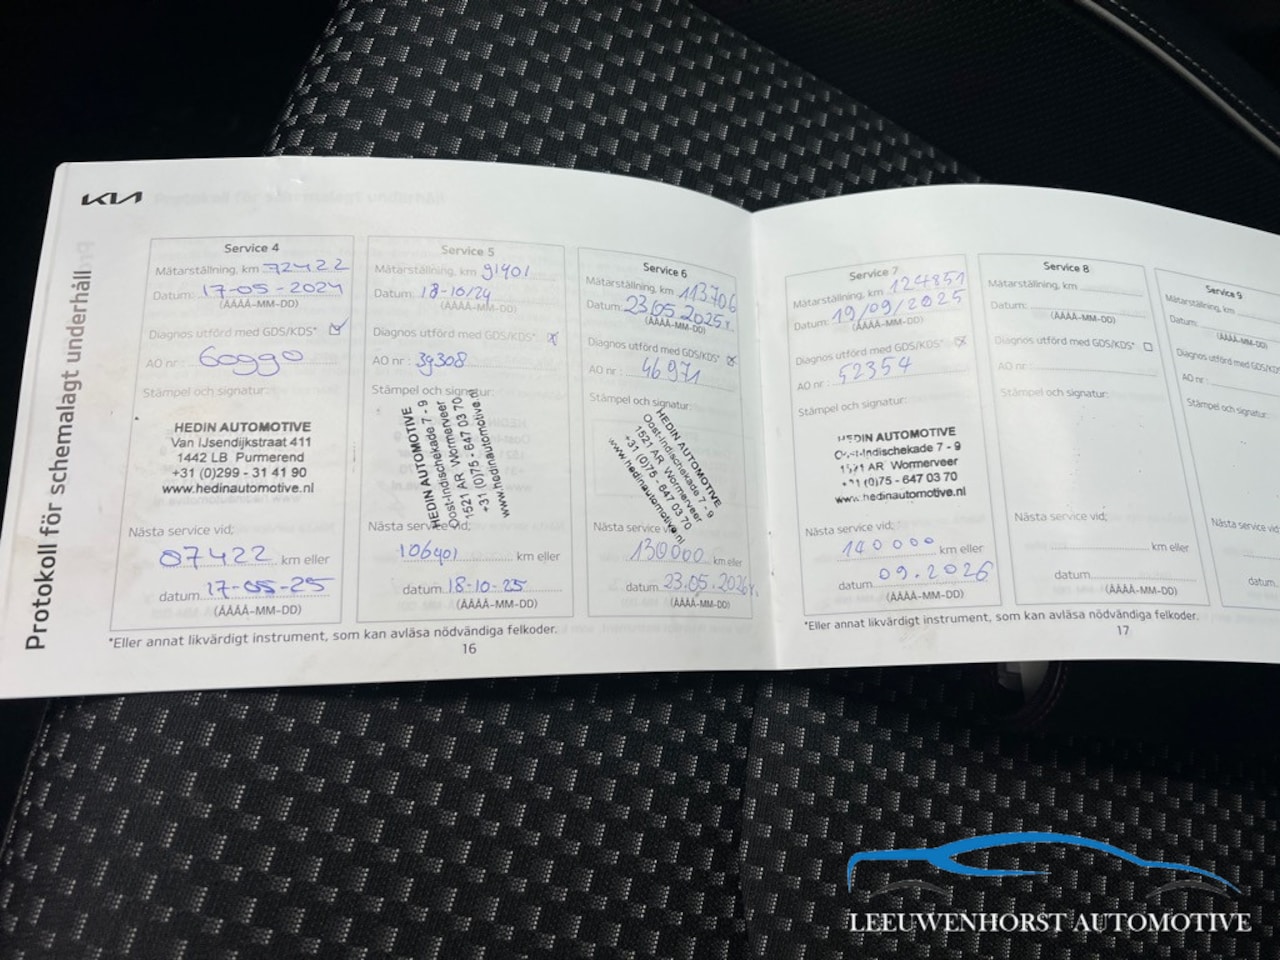 KIA
Protokoll för schemalagt underhåll
Service 4
Mätarställning, km 72422
Datum: 17-05-2024
(ÅÅÅÅ-MM-DD)
Diagnos utförd med GDS/KDS*
AO nr : 60990
Stämpel och signatur:
HEDIN AUTOMOTIVE
Van IJsendijkstraat 411
1442 LB Purmerend
+31 (0)299 - 31 41 90
www.hedinautomotive.nl
Nästa service vid;
07422 km eller
datum 17-05-25
(ÅÅÅÅ-MM-DD)
Service 5
Mätarställning, km 91401
Datum: 18-10/24
(ÅÅÅÅ-MM-DD)
Diagnos utförd med GDS/KDS*
AO nr : 39308
Stämpel och signatur:
HEDIN AUTOMOTIVE
Oost-Indischekade 7 - 9
1521 AR Wormerveer
+31 (0)75 - 647 03 70
www.hedinautomotive.nl
Nästa service vid;
106401 km eller
datum 18-10-25
(ÅÅÅÅ-MM-DD)
Service 6
Mätarställning, km 113706
Datum: 23/05.2025r.
(ÅÅÅÅ-MM-DD)
Diagnos utförd med GDS/KDS*
AO nr : 46971
Stämpel och signatur:
HEDIN AUTOMOTIVE
Oost-Indischekade 7 - 9
1521 AR Wormerveer
+31 (0)75 - 647 03 70
www.hedinautomotive.nl
Nästa service vid;
130000 km eller
datum 23.05.2026r.
(ÅÅÅÅ-MM-DD)
*Eller annat likvärdigt instrument, som kan avläsa nödvändiga felkoder.
16
Service 7
Mätarställning, km 124851
Datum: 19/09/2025
(ÅÅÅÅ-MM-DD)
Diagnos utförd med GDS/KDS*
AO nr : 52354
Stämpel och signatur:
HEDIN AUTOMOTIVE
Oost-Indischekade 7 - 9
1521 AR Wormerveer
+31 (0)75 - 647 03 70
www.hedinautomotive.nl
Nästa service vid;
140000 km eller
datum 09.2026
(ÅÅÅÅ-MM-DD)
Service 8
Mätarställning, km
Datum:
(ÅÅÅÅ-MM-DD)
Diagnos utförd med GDS/KDS*
AO nr :
Stämpel och signatur:
Nästa service vid;
km eller
datum
(ÅÅÅÅ-MM-DD)
Service 9
Mätarställning, km
Datum:
(ÅÅÅÅ-MM-DD)
Diagnos utförd med GDS/KDS
AO nr :
Stämpel och signatur:
Nästa service vid;
datum
*Eller annat likvärdigt instrument, som kan avläsa nödvändiga felkoder.
17
LEEUWENHORST AUTOMOTIVE